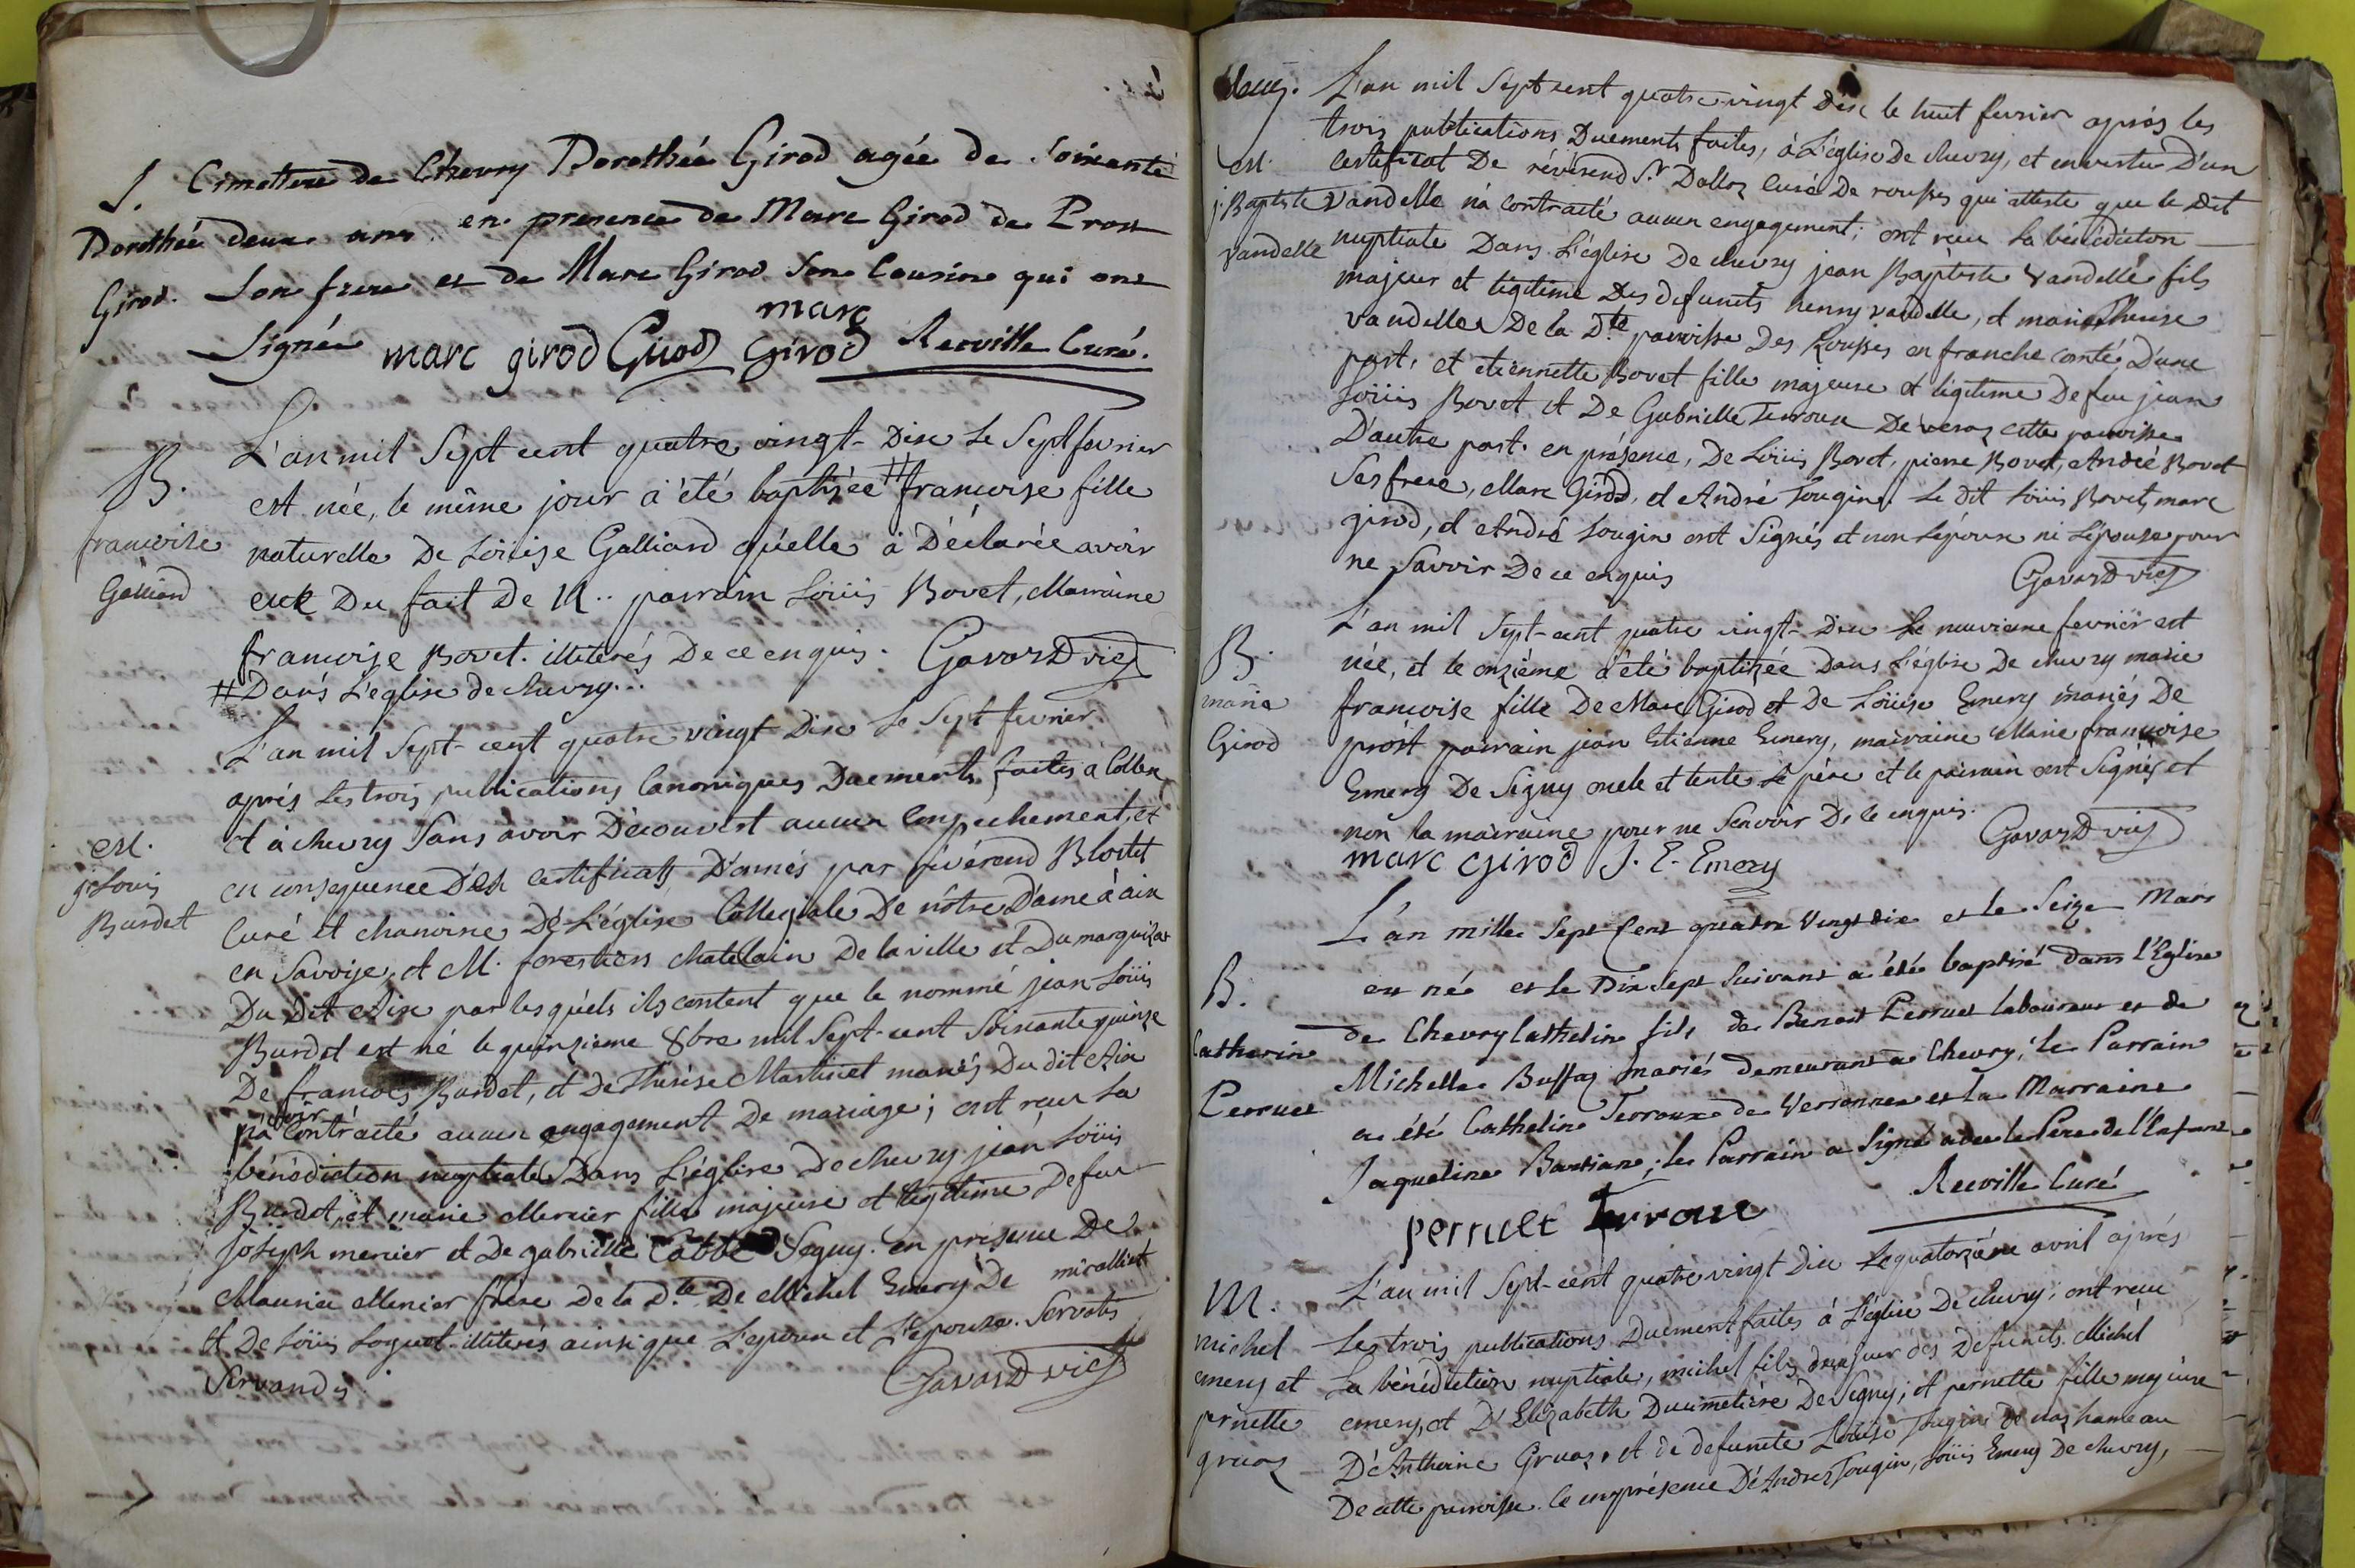 S.
Dorothée
Girod.
Cimetiere de Chevry Dorothée Girod agée de Soixante
deux ans en presence de Marc Girod de Prost
Son frere et de Marc Girod Son Cousin qui ont
Signée marc girod Girod marc Girod Reeville Curé.
B.
francoise
Galliard
L'an mil Sept cent quatre vingt-Dix Le Sept fevrier
est née, le même jour a été baptisée # francoise fille
naturelle De Loüise Galliard qu'elle à Déclarée avoir
eue Du fait De N.. parrain Loüis Bovet, Marraine
francoise Bovet. illiterés De ce enquis. Gavard vic
# Dans L'eglise de chevry...
M.
j. Louis
Burdet
L'an mil Sept-cent quatre vingt Dix Le Sept fevrier
après Les trois publications Canoniques Duements faites a Collex
et à chevry Sans avoir Découvert aucun Empechement, et
en consequence Des certificats Donnés par révérend Blostet
Curé et chanoine De L'église Collegiale De nôtre Dame à aix
en Savoÿe, et M. forestiers chatelain De la ville et Du marquizat
Du Dit Aix par lesquels ils content que le nommé jean Loüis
Burdet est né le quinzieme 8bre mil Sept-cent Soixante quinze
De francois Burdet, et De Therese Martinet mariés Du dit Aix
n'avoir Contracté aucun engagement De mariage; ont reçu La
bénédiction nuptiale Dans L'église De chevry jean Loüis
Burdet, et marie Mercier fille majeure et légitime De feu
Joseph mercier et De gabrielle Cotte Segny. en presence De
Maurice Mercier frere De la Dte De Michel Emery De mirallict
et De Loüis Loguet illiterés ainsi que L'epoux et L'épouse. Servatis
Servandis. Gavard vic
deux.
M.
j. Baptiste
Vandelle
L'an mil Sept cent quatre vingt Dix le huit fevrier après les
trois publications Duements faites, à L'église De chevry, et en vertu D'un
certificat De révérend Sr Dalloz Curé De rousses qui atteste que le Dit
Vandelle n'a contracté aucun engagement; ont reçu la bénédiction
nuptiale Dans L'église De chevry jean Baptiste Vandelle fils
majeur et légitime Des défunts henry vandelle, et marie Therese
vandelle De la Dte paroisse Des Rousses en franche comté D'une
part, et etiennette Bovet fille majeure et légitime De feu jean
Loüis Bovet et De Gabrielle Terroux De veraz cette paroisse
D'autre part. en présence, De Loüis Bovet, pierre Bovet, André Bovet
Ses frere, Marc Girod, et André Tougin. Le Dit Loüis Bovet, marc
girod, et André Tougin ont Signés et non L'époux ni L'épouse pour
ne Savoir De ce enquis Gavard vic
B.
marie
Girod
L'an mil Sept-cent quatre vingt-Dix Le neuvieme fevrier est
née, et le onzième a été baptizée Dans L'église De chevry marie
francoise fille De Marc Girod et De Loüise Emery mariés De
prost parrain jean Etienne Emery, marraine Marie francoise
Emery De Segny oncle et tente Le père et le parrain ont Signés et
non la marraine pour ne Scavoir De ce enquis. Gavard vic
marc Girod J. E. Emery
B.
Catherin
Perruet
L'an mille Sept Cent quatre Vingt dix et le Seize Mars
est né et le Dix Sept Suivant a été baptisé dans l'Eglise
de Chevry Cathelin fils de Benoit Perruet laboureur et de
Michelle Buffaz mariés demeurant a Chevry; le Parrain
a été Cathelin Terroux de Versonnex et la Marraine
Jaqueline Bastian; le Parrain a Signé avec le Pere de l'Enfant
perruet Terroux Reeville Curé
M.
michel
emery et
pernette
gruaz
L'an mil Sept-cent quatre vingt Dix Le quatorzième avril après
Les trois publications Duement faites à L'église De chevry; ont reçu
La bénédiction nuptiale, michel fils majeur des Défunts Michel
emery, et D'Elizabeth Ducimetière De Segny; et pernette fille majeure
D'Anthoine Gruaz, et de defunte Louise Tougin De naz hameau
De cette paroisse. Ce en présence D'André Tougin, Loüis Emery De chevry,